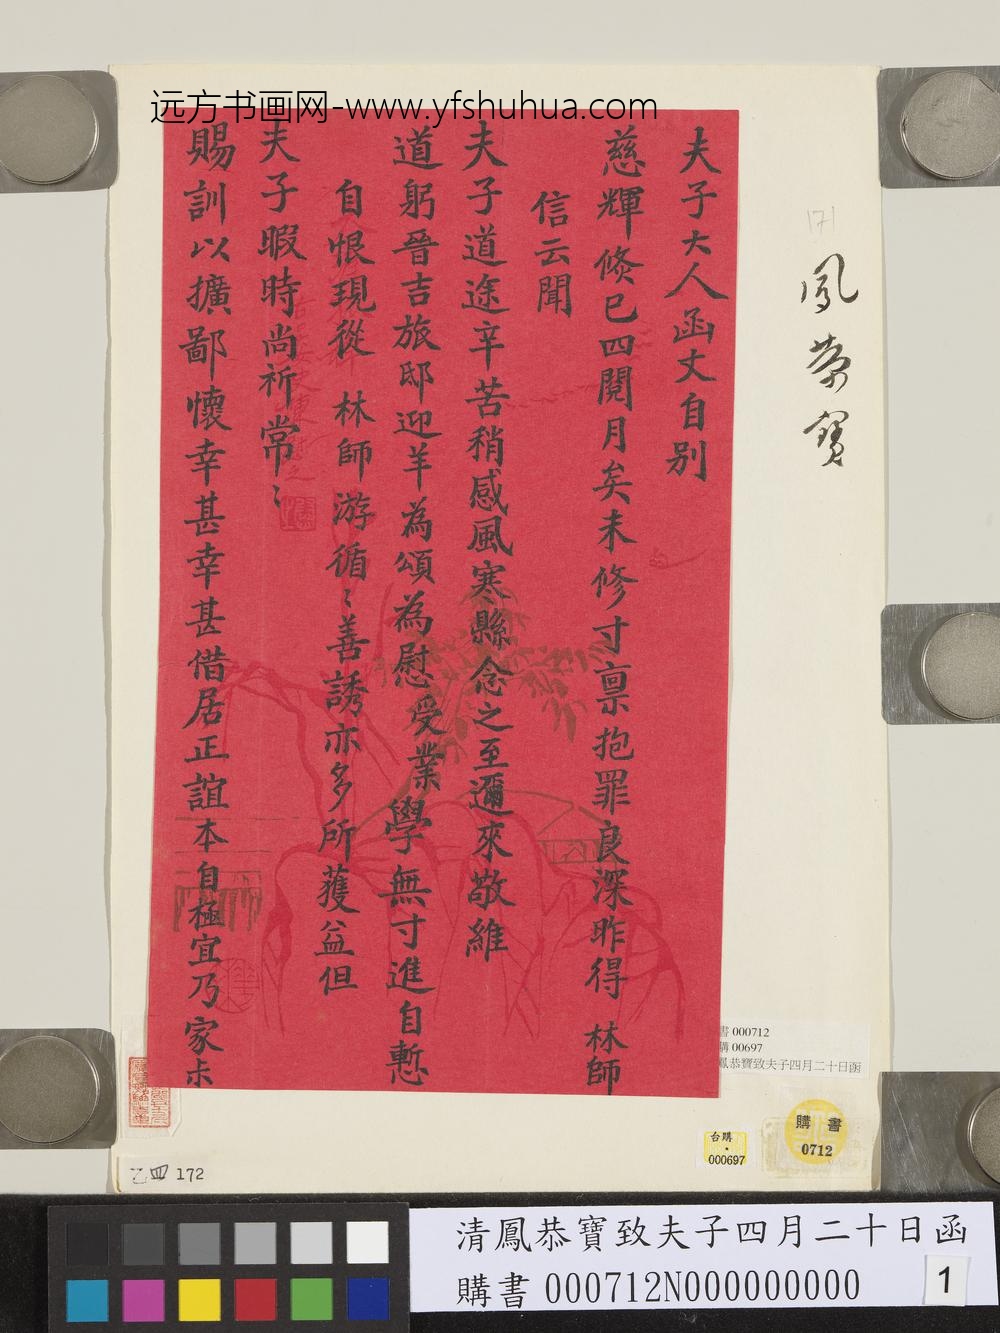 远方书画网-www.yfshuhua.com
171
夫子大人函丈自别
慈輝倐已四閱月矣未修寸稟抱罪良深昨得 林師
信云聞
夫子道途辛苦稍感風寒縣念之至邇來敬維
道躬晉吉旅邸迎羊為頌為慰受業學無寸進自慙
自恨現從 林師游循〻善誘亦多所獲益但
夫子暇時尚祈常〻
賜訓以擴鄙懷幸甚幸甚借居正誼本自極宜乃家尗
書 000712
購 00697
鳳恭寶致夫子四月二十日函
台購
000697
購 書
0712
乙四 172
清鳳恭寶致夫子四月二十日函
購書 000712N000000000
1